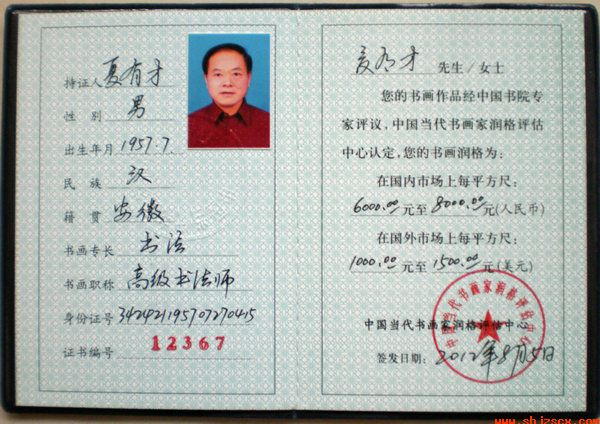 持证人 夏有才
性 别 男
出生年月 1957.7
民 族 汉
籍 贯 安徽
书画专长 书法
书画职称 高级书法师
身份证号 342421195707270415
证书编号 12367
夏有才 先生/女士
您的书画作品经中国书院专
家评议，中国当代书画家润格评估
中心认定，您的书画润格为：
在国内市场上每平方尺：
6000.00元至8000.00元(人民币)
在国外市场上每平方尺：
1000.00元至1500.00元(美元)
中国当代书画家润格评估中心
签发日期：2012年8月5日
中国当代书画家润格评估中心
www.shjzscx.com